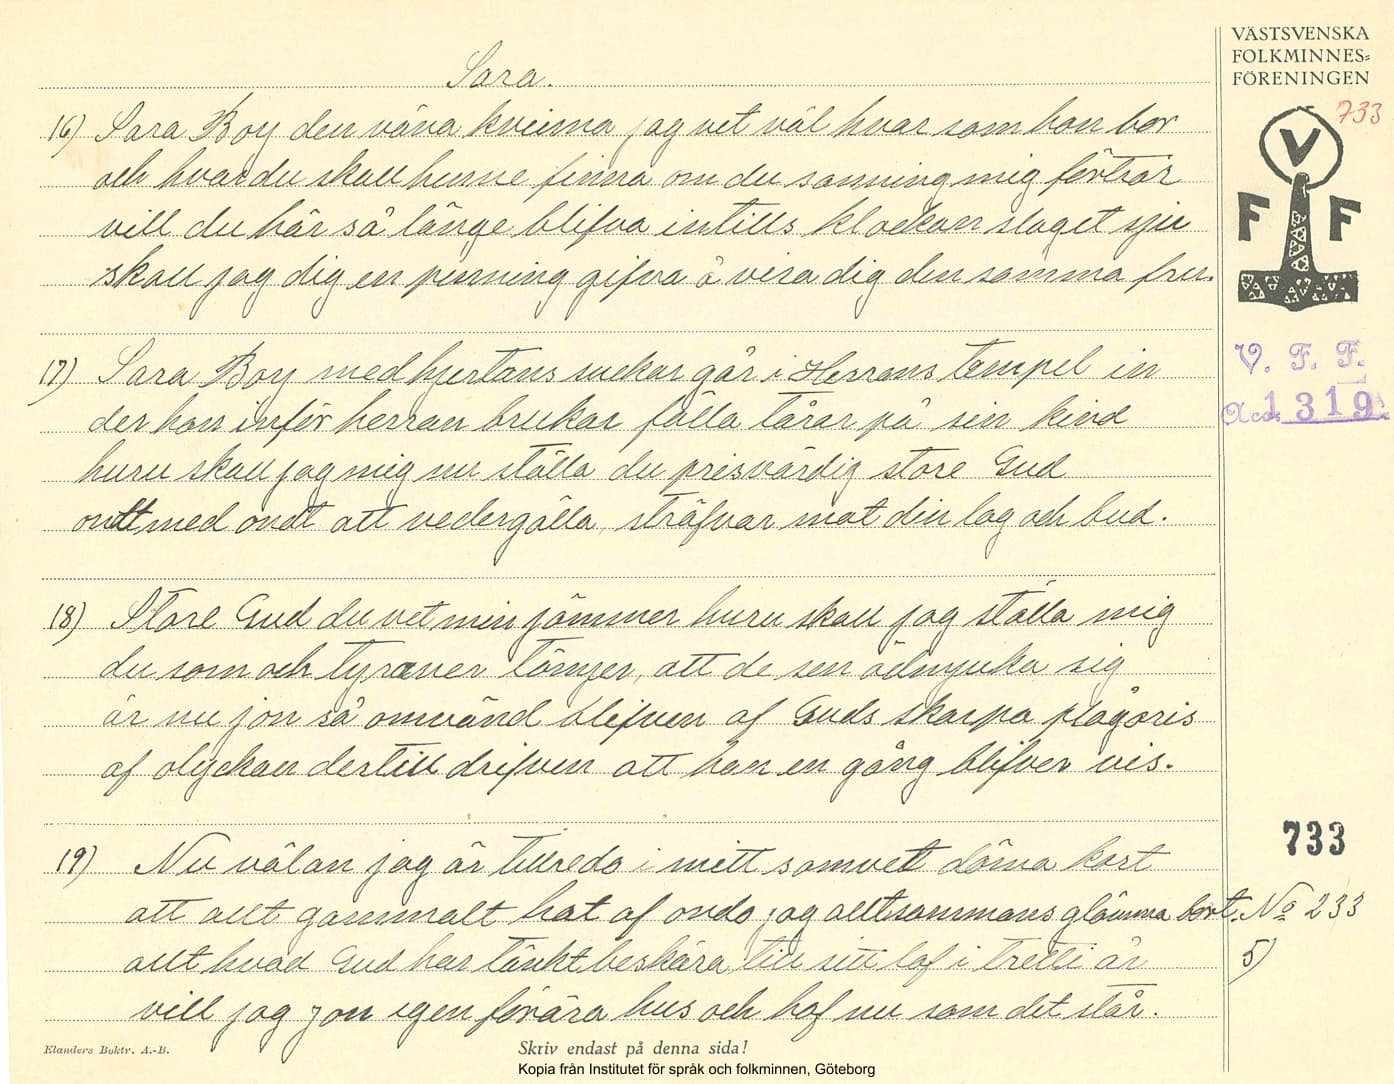 Sara.
16) Sara Boy den väna kvinna jag vet väl hvar som hon bor
och hvar du skall henne finna om du sanning mig förtror
vill du här så länge blifva intills klockan slaget sju
skall jag dig en penning gifva å visa dig den samma fru.
17) Sara Boy med hjertans suckar går i Herrans tempel in
der hon inför herran brukar fälla tårar på sin kind
huru skall jag mig nu ställa du prisvärdig store Gud
ontt med ondt att vedergälla, sträfvar mot din lag och bud.
18) Store Gud du vet min jämmer huru skall jag ställa mig
du som och tyraner tämjer, att de sen ödmjuka sig
är nu jon så omvänd blifven af Guds skarpa plågoris
af olyckan dertill drifven att han en gång blifver vis.
19) Nu välan jag är tillreds i mitt samvett döma kort
att allt gammalt hat af ondo jag alltsammans glömma bort.
allt hvad Gud har tänkt beskära till sitt lof i tretti år
vill jag jon igen förära hus och hof nu som det står.
VÄSTSVENSKA
FOLKMINNES=
FÖRENINGEN
733
V
F F
V. F. F.
Acc. 1319
733
No 233
5)
Elanders Boktr. A.-B.
Skriv endast på denna sida!
Kopia från Institutet för språk och folkminnen, Göteborg